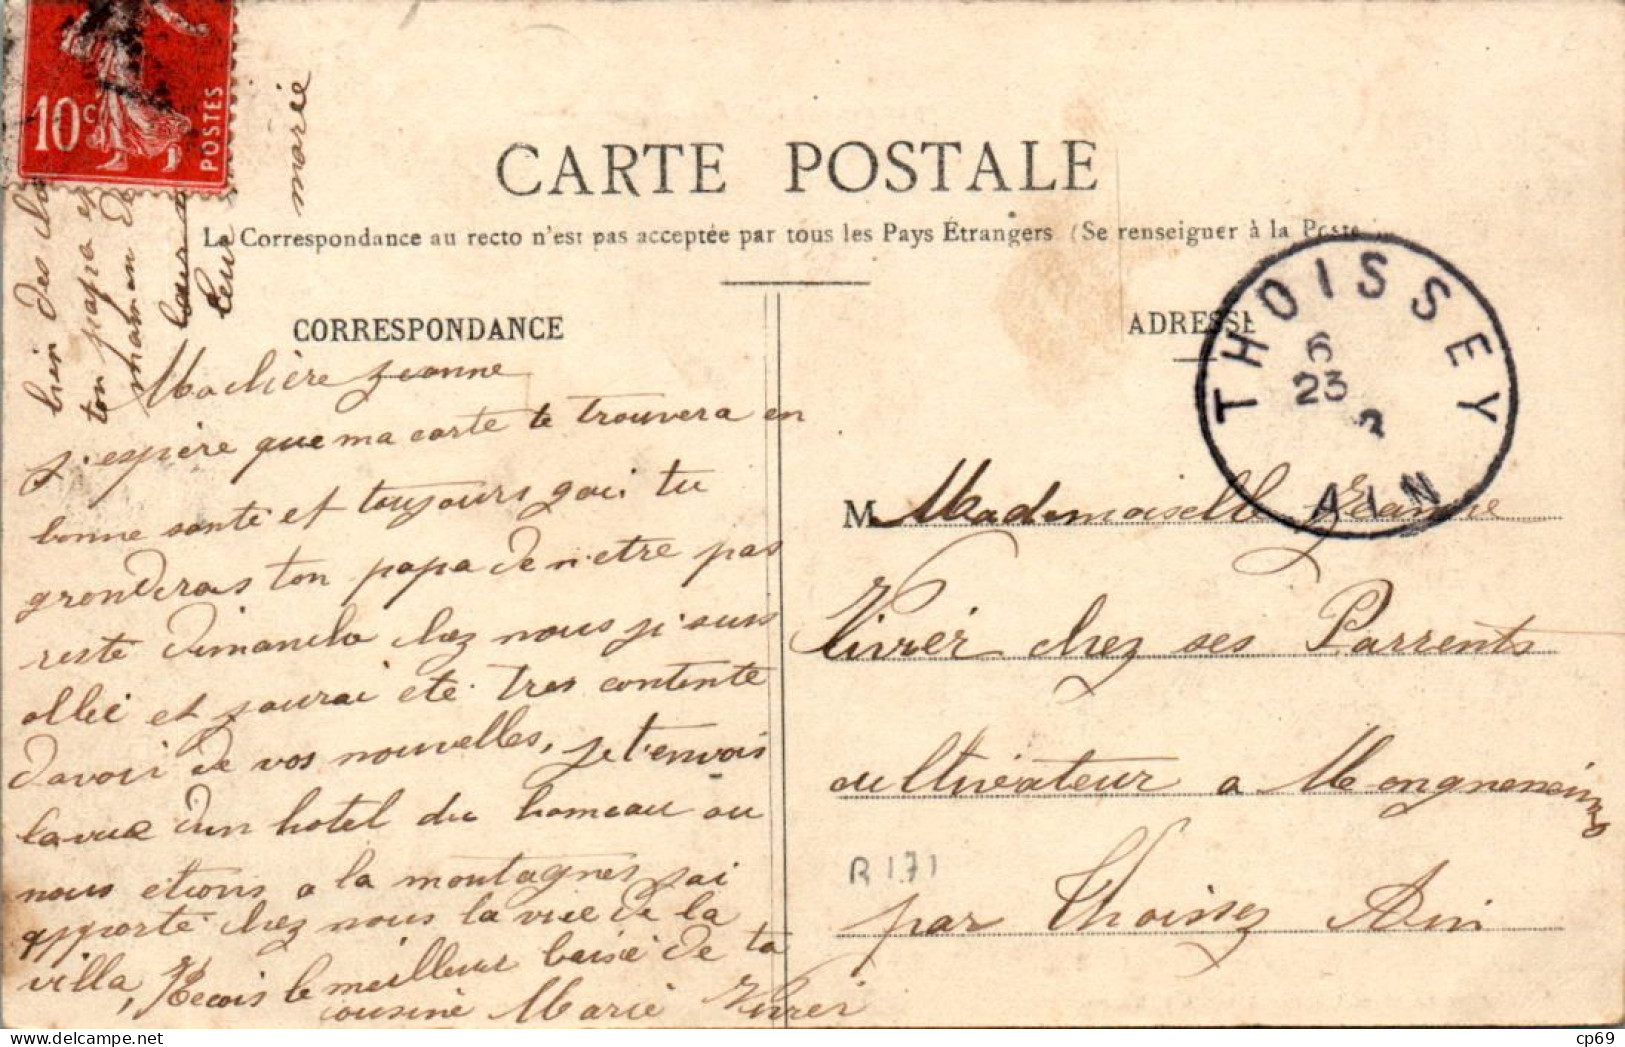 10c
POSTES
CARTE POSTALE
La Correspondance au recto n'est pas acceptée par tous les Pays Étrangers (Se renseigner à la Poste
CORRESPONDANCE
ADRESSE
THOISSEY
6
23
2
AIN
Machère Jeanne
j'espère que ma carte te trouvera en
bonne santé et toujours gai. tu
gronderas ton papa de n'etre pas
resté dimanche chez nous j'i suis
allée et j'aurai eté tres contente
d'avoir de vos nouvelles, je t'envois
la vue d'un hotel du hameau ou
nous etions a la montagnes, j'ai
apporté chez nous la vue de la
villa, Recois le meilleur baisé de ta
cousine Marie Vivier
bien des
ton papa et
maman de
leur
marie
M Mademoiselle Jeanne
Vivier chez ses Parrents
cultivateur a Mogneneins
par Thoissey Ain
R 171
cp69